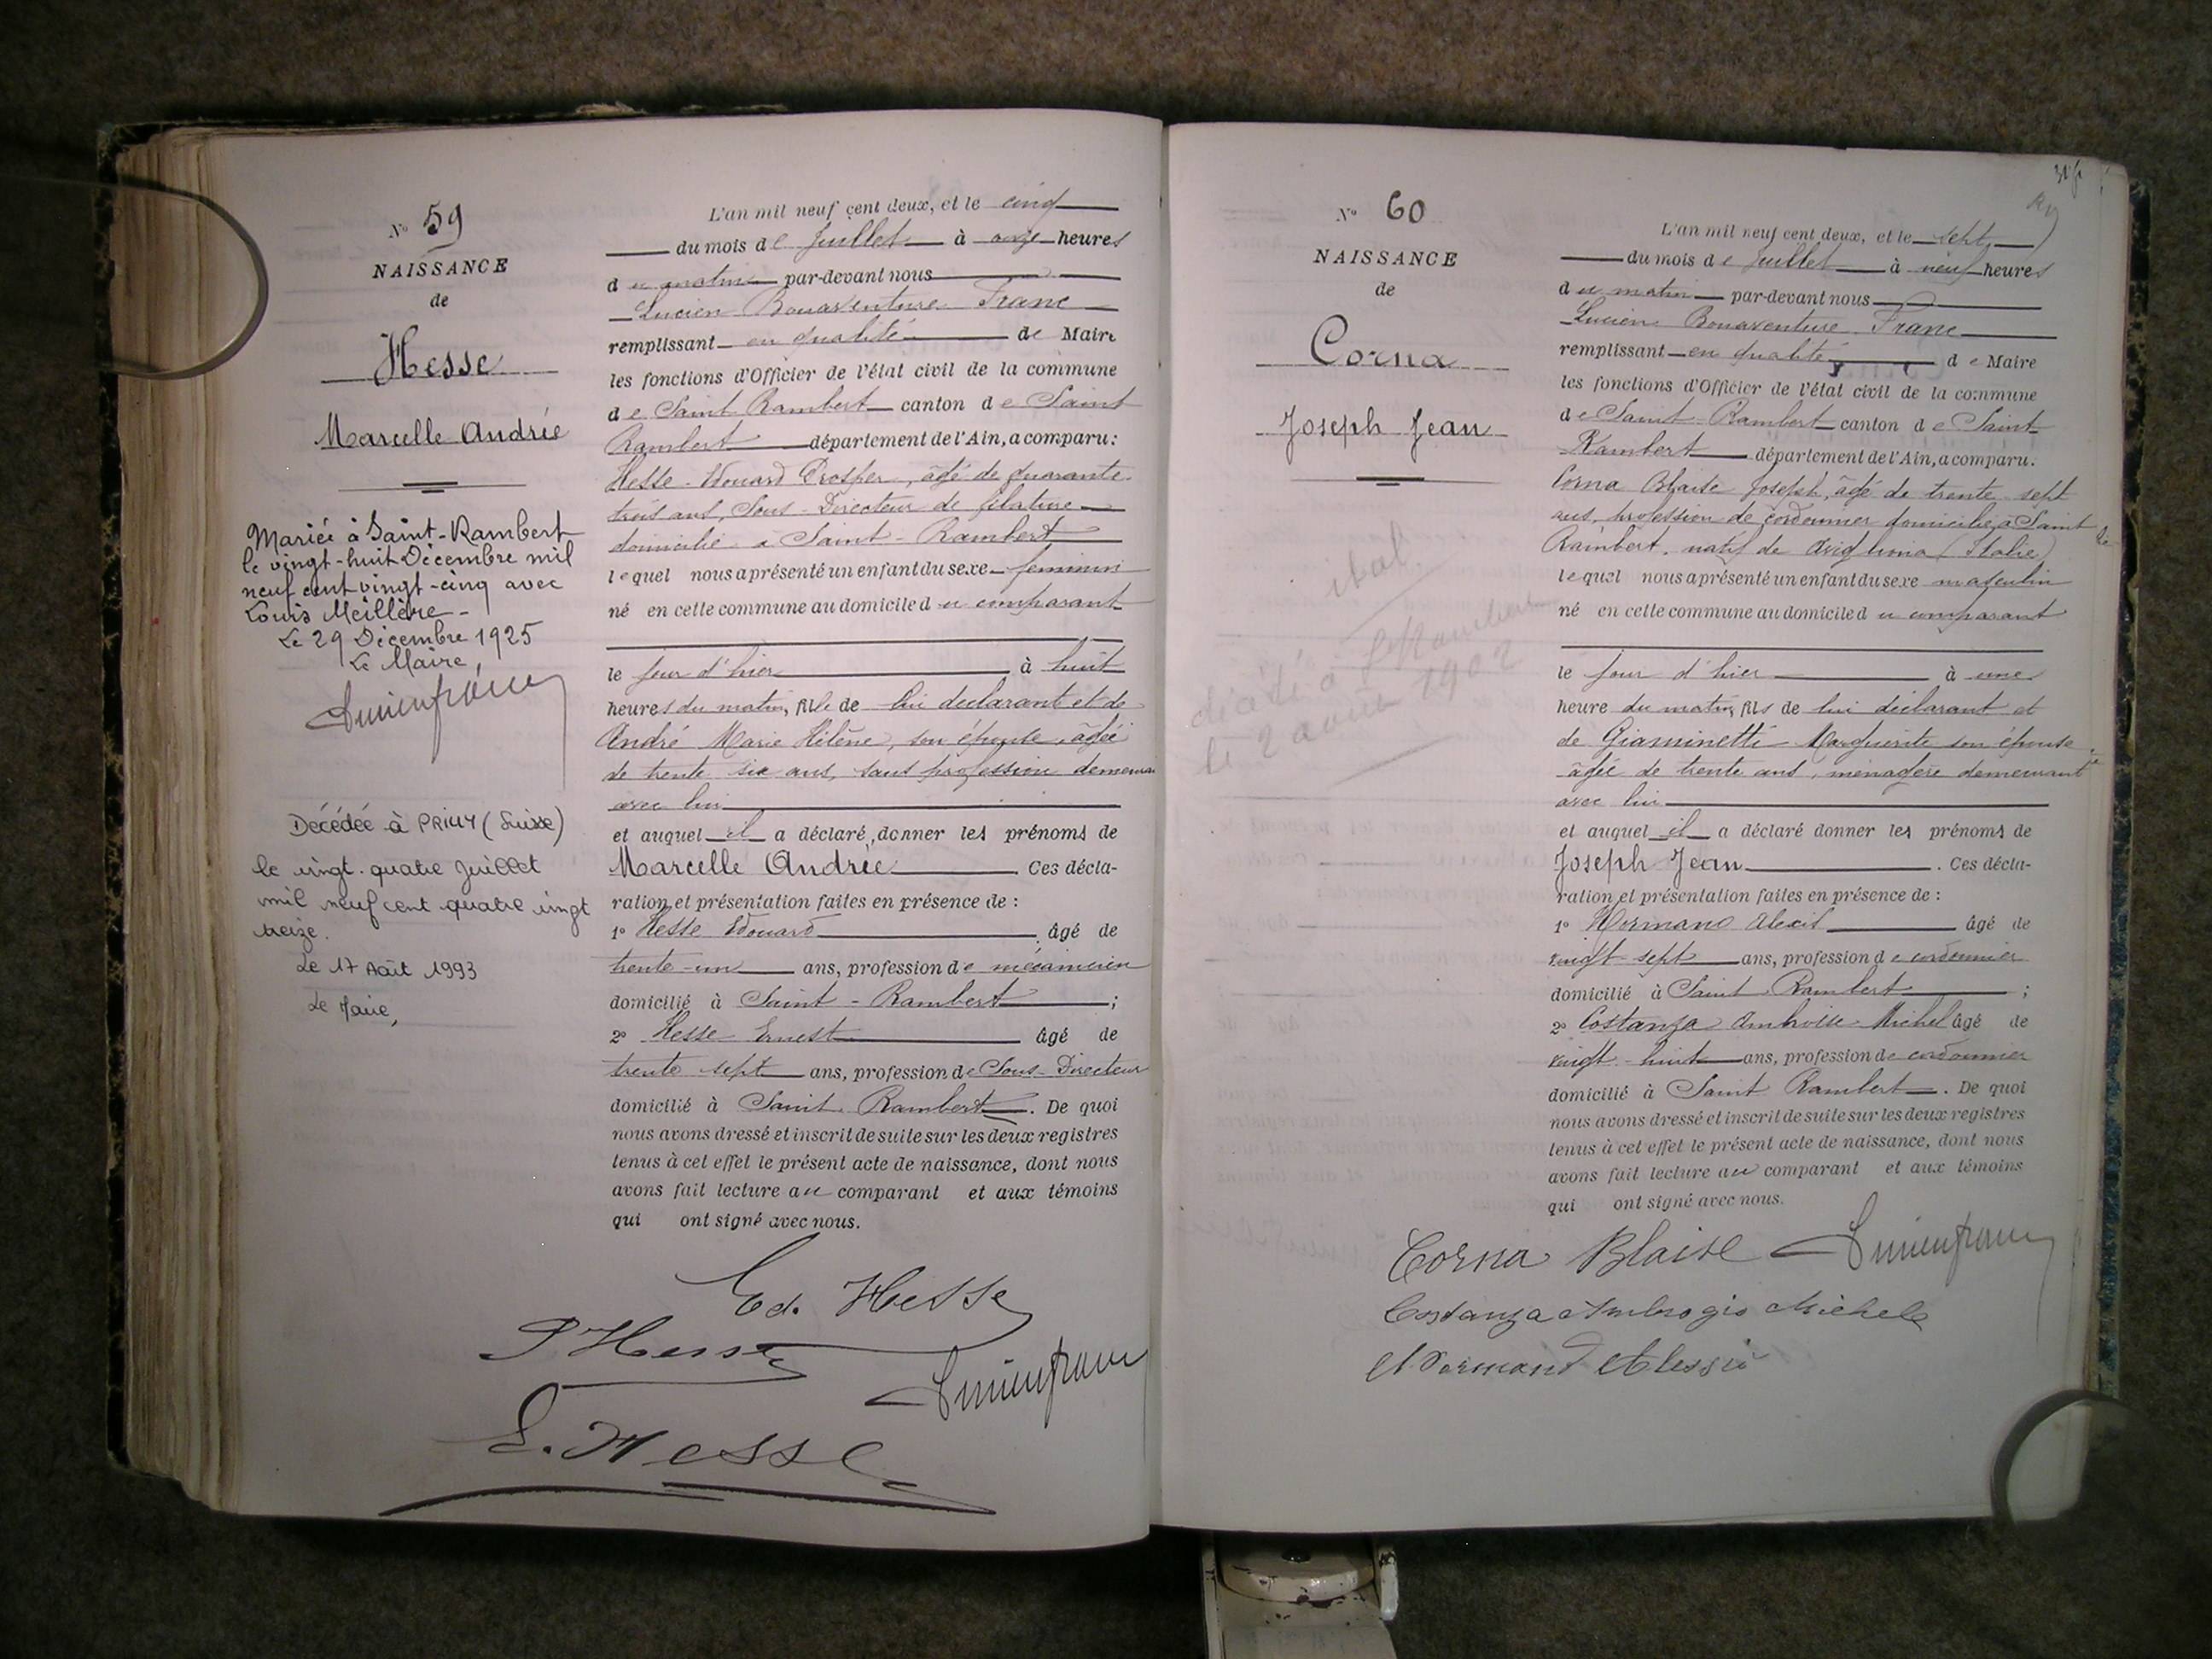 Nº 59
NAISSANCE
de
Hesse
Marcelle Andrée
Mariée à Saint-Rambert
le vingt-huit Décembre mil
neuf cent vingt-cinq avec
Louis Meillère -
Le 29 Décembre 1925
Le Maire,
Décédée à PRILLY (Suisse)
le vingt-quatre Juillet
mil neuf cent quatre vingt
treize.
Le 17 Août 1993
Le Maire,
L'an mil neuf cent deux, et le cinq
du mois de Juillet à onze heures
du matin par-devant nous
Lucien Bonaventure Franc
remplissant en qualité de Maire
les fonctions d'Officier de l'état civil de la commune
de Saint Rambert canton de Saint
Rambert département de l'Ain, a comparu:
Hesse Edouard Prosper, âgé de quarante
trois ans, Sous-Directeur de filature
domicilié à Saint-Rambert
lequel nous a présenté un enfant du sexe féminin
né en cette commune au domicile du comparant
le jour d'hier à huit
heures du matin, fille de lui déclarant et de
André Marie Hélène, son épouse, âgée
de trente six ans, sans profession demeurant
avec lui
et auquel il a déclaré donner les prénoms de
Marcelle Andrée. Ces décla-
ration et présentation faites en présence de :
1º Hesse Edouard âgé de
trente-un ans, profession de mécanicien
domicilié à Saint-Rambert ;
2º Hesse Ernest âgé de
trente sept ans, profession de Sous-Directeur
domicilié à Saint Rambert. De quoi
nous avons dressé et inscrit de suite sur les deux registres
tenus à cet effet le présent acte de naissance, dont nous
avons fait lecture au comparant et aux témoins
qui ont signé avec nous.
Ed. Hesse
P Hesse
Lucien franc
E. Hesse
Nº 60
NAISSANCE
de
Corna
Joseph Jean
ital.
décédé à
le 2 août 1902
L'an mil neuf cent deux, et le sept
du mois de Juillet à neuf heures
du matin par-devant nous
Lucien Bonaventure Franc
remplissant en qualité de Maire
les fonctions d'Officier de l'état civil de la commune
de Saint-Rambert canton de Saint-
Rambert département de l'Ain, a comparu.
Corna Blaise Joseph, âgé de trente sept
ans, profession de cordonnier domicilié à Saint
Rambert, natif de Avigliana (Italie)
lequel nous a présenté un enfant du sexe masculin
né en cette commune au domicile du comparant
le jour d'hier à une
heure du matin, fils de lui déclarant et
de Giaminetti Marguerite son épouse
âgée de trente ans, ménagère demeurant
avec lui
et auquel il a déclaré donner les prénoms de
Joseph Jean. Ces décla-
ration et présentation faites en présence de :
1º Normand Alexis âgé de
vingt-sept ans, profession de cordonnier
domicilié à Saint Rambert ;
2º Costanza Ambroise Michel âgé de
vingt-huit ans, profession de cordonnier
domicilié à Saint Rambert. De quoi
nous avons dressé et inscrit de suite sur les deux registres
tenus à cet effet le présent acte de naissance, dont nous
avons fait lecture au comparant et aux témoins
qui ont signé avec nous.
Corna Blaise Lucien franc
Costanza Ambrogio Michele
Normand Alessio